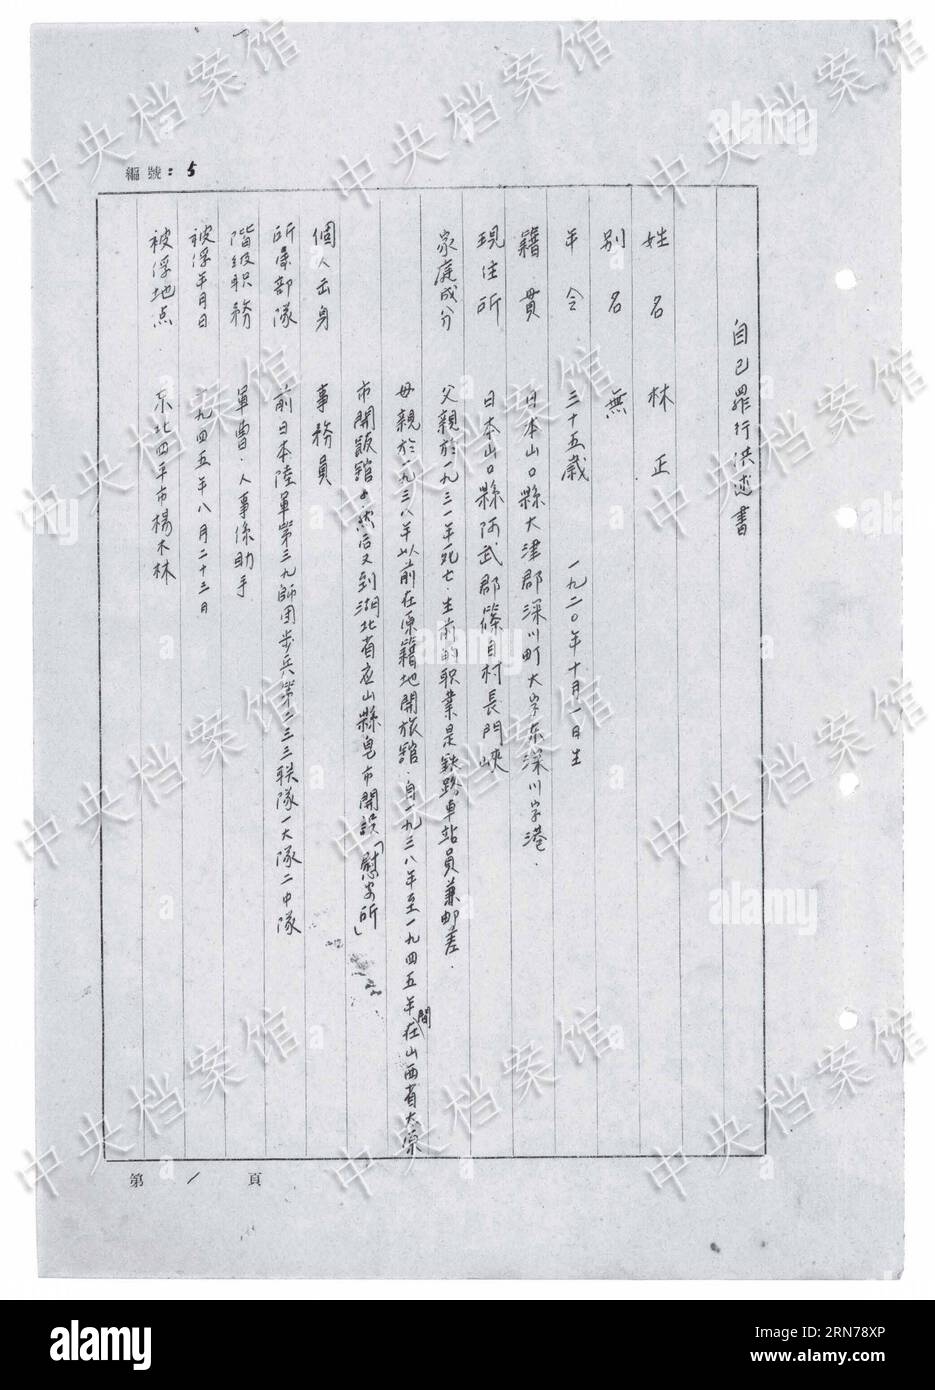 編號：5
自己罪行供述書
姓名 林正
別名 無
年令 三十五歲 一九二〇年十月一日生
籍貫 日本山口縣大津郡深川町大字东深川字港.
現住所 日本山口縣阿武郡篠目村長門峽
家庭成分 父親於一九三一年死亡.生前的职業是鉄路車站員兼邮差.
母親於一九三八年以前在原籍地開旅舘.自一九三八年至一九四五年間在山西省太原
市開飯舘.然后又到湖北省应山縣皂市開設「慰安所」
個人出身 事務員
所屬部隊 前日本陸軍第三九師团步兵第二三三联隊一大隊二中隊
階級职務 軍曹.人事係助手
被俘年月日 一九四五年八月二十三日
被俘地点 东北四平市楊木林
第 1 頁
中央档案馆
alamy
Image ID: 2RN78XP
www.alamy.com